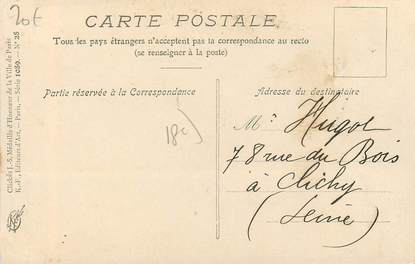 20€
CARTE POSTALE
Tous les pays étrangers n'acceptent pas la correspondance au recto
(se renseigner à la poste)
Partie réservée à la Correspondance
Adresse du destinataire
Clichés J.-S. Médaille d'Honneur de la Ville de Paris
K.-F., Editeurs d'Art, - Paris, - Série 1080. - N° 28
Mr Hugot
78 rue du Bois
à Clichy
(Seine)